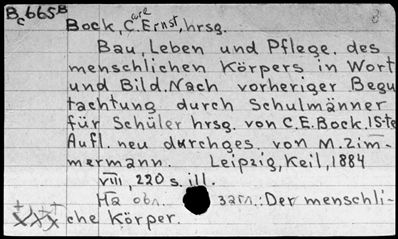 Bc665B
Bock, Carl Ernst, hrsg.
Bau, Leben und Pflege des
menschlichen Körpers in Wort
und Bild. Nach vorheriger Begu
tachtung durch Schulmänner
für Schüler hrsg. von C.E.Bock. 15te
Aufl. neu durchges. von M.Zim-
mermann. Leipzig, Keil, 1884
VIII, 220 s. ill.
Ha obn. заги.: Der menschli-
che Körper.